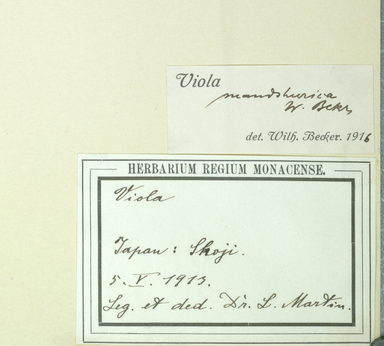 Viola
mandshurica
W. Bckr.
det. Wilh. Becker. 1916
HERBARIUM REGIUM MONACENSE.
Viola
Japan: Skoji.
5. V. 1913.
Leg. et ded. Dr. L. Martin.